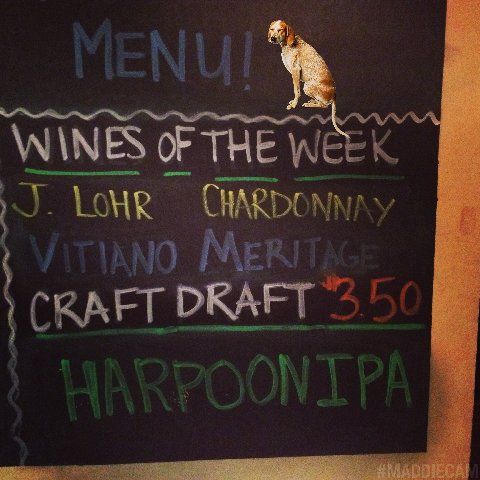 MENU!
WINES OF THE WEEK
J. LOHR CHARDONNAY
VITIANO MERITAGE
CRAFT DRAFT $3.50
HARPOON IPA
#MADDIECAM